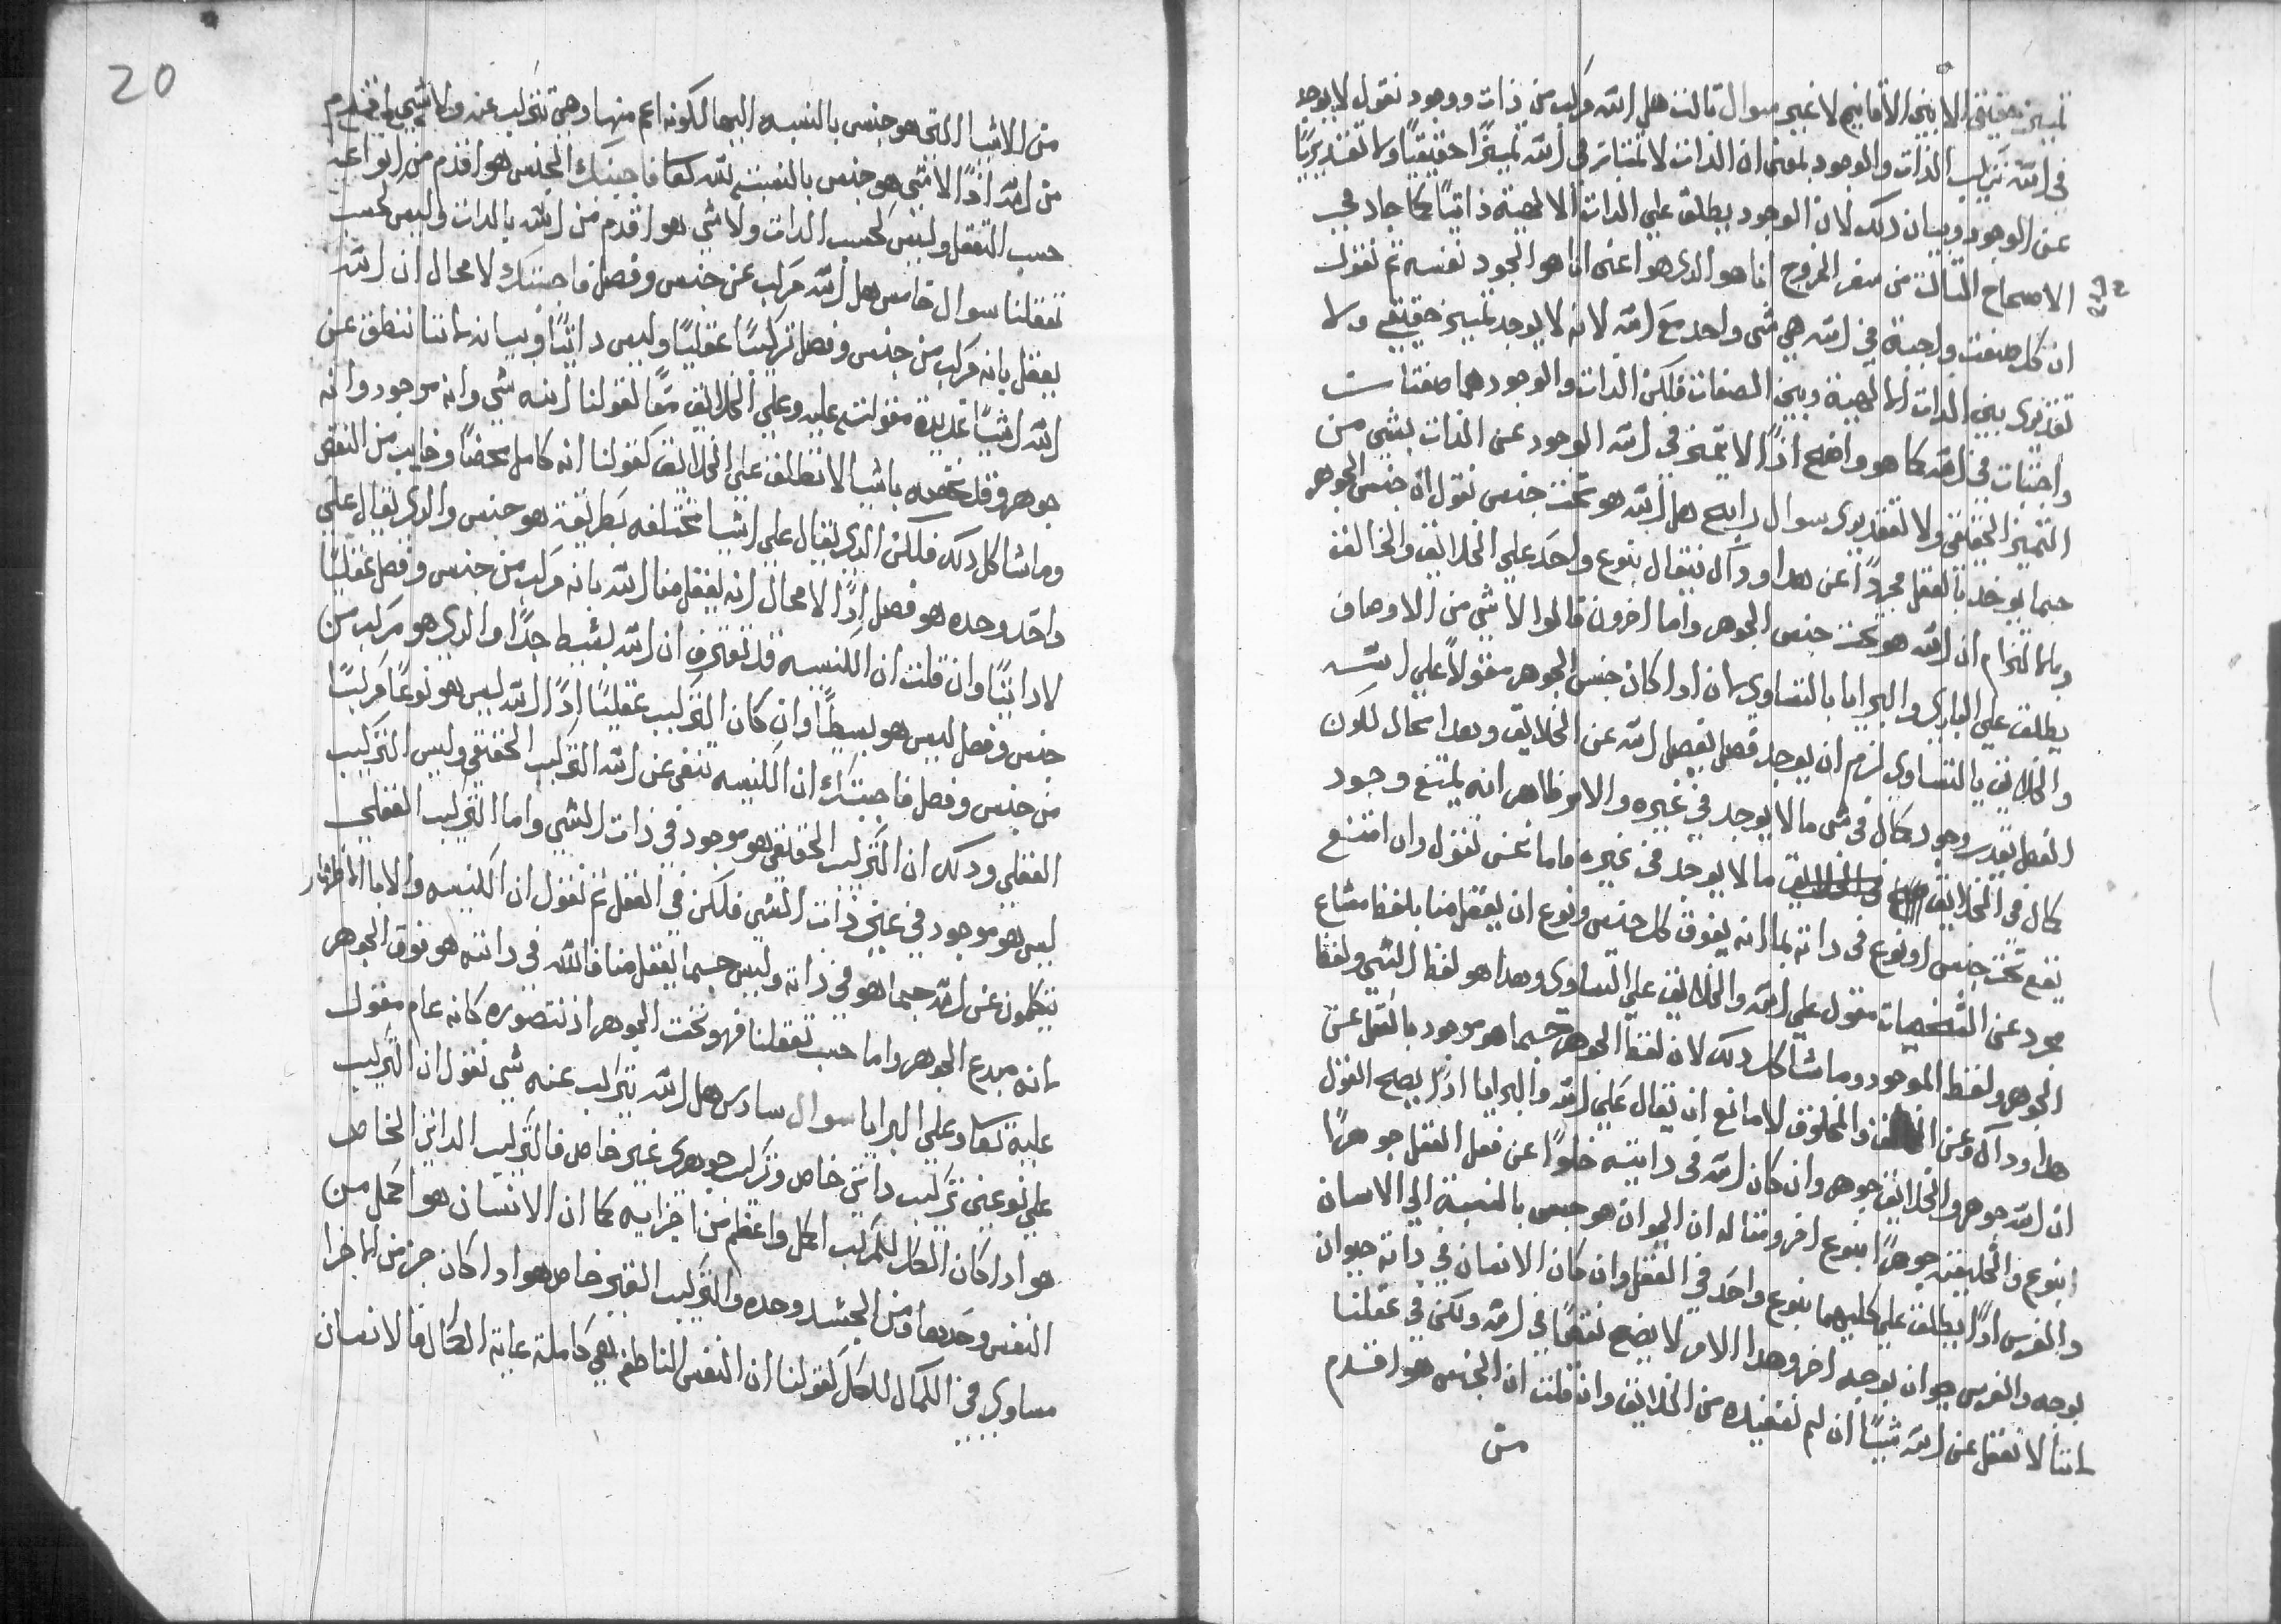 تمييز حقيقي الا بين الاقانيم لا غير سوال تالت هل الله مركب من ذات ووجود نقول لا يوجد
في الله تركيب الذات والوجود بمعنى ان الذات لا تمتاز في الله تميزًا حقيقيًا ولا تقديريًا
عن الوجود وبيان ذلك لان الوجود يطلق علي الذات الالهية ذاتيًا كما جاء في
الاصحاح التالت من سفر الخروج انا هو الدي هو اعني انا هو الوجود نفسه ثم نقول
ان كل صفة واجبة في الله هي شي واحد مع الله لانه لا يوجد تمييز حقيقي ولا
تقديري بين الدات الالهية وبين الصفات فلكن الدات والوجود هما صفتات
واجبتات في الله كما هو واضح اذًا لا يتميز في الله الوجود عن الذات بشي من
التميز الحقيقي ولا تقديري سوال رابع هل الله هو تحت جنس نقول ان جنس الجوهر
حيما يوخد بالعقل مجردًا عن هدا وداك يقال بنوع واحد علي الخلايق والخالق
وبالالتزام ان الله هو تحت جنس الجوهر واما اخرون قالوا لا شي من الاوصاف
يطلق علي الباري والبرايا بالتساوي لان ادا كان جنس الجوهر مقولًا علي الله
والخلايق بالتساوي لزم ان يوجد فصل يفصل الله عن الخلايق وهدا محال لكون
الفصل يفيد وجود كمال في شي ما لا يوجد في غيره والامر ظاهر انه يمتنع وجود
كمال في الخلايق ما لا يوجد في غيره فاما نحن نقول وان امتنع
يقع تحت جنس او نوع في داته بما انه يفوق كل جنس ونوع ان يعقل منا بلفظ مشاع
مجرد عن التشخصات مقول علي الله والخلايق علي التساوي وهدا هو لفظ الشي ولفظ
الجوهر ولفظ الموجود وما شاكل دلك لان لفظ الجوهر حيما هو موجود بالعقل عن
هدا وداك وعن الخالق والمخلوق لا مانع ان يقال علي الله والبرايا اذًا يصح القول
ان الله جوهر والخلايق جوهر وان كان الله في داتيته خلوًا عن فعل العقل جوهرًا
بنوع والخليقه جوهرًا بنوع اخر ومثاله ان الحيوان هو جنس بالنسبة الي الانسان
والفرس ادًا يطلق علي كليهما بنوع واحد في العقل وان كان الانسان في داته حيوان
بوجه والفرس حيوان بوجه اخر وهدا الامر لا يضع نقصًا في الله ولكن في عقلنا
لاننا لا نعقل عن الله شيًا ان لم نستفيده من الخلايق وان قلت ان الجنس هو اقدم
من
20
من الاشيا التي هو جنس بالنسبه اليها لكونه اعم منها وهي تتركب عنه ولا شي اقدم
من الله اذًا لا شي هو جنس بالنسبة لله تعا فاجيبك الجنس هو اقدم من انواعه
حسب التعقل وليس بحسب الدات ولا شي هو اقدم من الله بالدات وليس بحسب
تعقلنا سوال خامس هل الله مركب من جنس وفصل فاجيبك لا محال ان الله
يعقل بانه مركب من جنس وفصل تركيبًا عقليًا وليس داتيًا وبيانه لاننا ننطق عن
الله اشيًا عديدة مقولة عليه وعلي الخلايق معًا كقولنا انه شي وانه موجود وانه
جوهر وقد نخصه باشيا لا تطلق علي الخلايق كقولنا انه كامل محضًا وخايب من النقص
وما شاكل دلك فلكن الدي يقال علي اشيا مختلفه بطريقة هو جنس والدي يقال علي
واحد وحده هو فصل ادًا لا محال انه يعقل منا الله بانه مركب من جنس وفصل عقليًا
لا داتيًا وان قلت ان الكنيسه قد تعترف ان الله بسيط جدًا والدي هو مركب من
جنس وفصل ليس هو بسيطًا وان كان التركيب عقليًا ادًا الله ليس هو نوعًا مركبًا
من جنس وفصل فاجيبك ان الكنيسه تنفي عن الله التركيب الحقيقي وليس التركيب
العقلي ودلك ان التركيب الحقيقي هو موجود في ذات الشي واما التركيب العقلي
ليس هو موجود في عين ذات الشي فلكن في العقل ثم نقول ان الكنيسه والابا الاطهار
يتكلمون عن الله حيما هو في ذاته وليس حيما يعقل منا فالله في داته هو فوق الجوهر
لانه مبدع الجوهر واما حسب تعقلنا فهو تحت الجوهر اذ نتصوره كانه عام مقول
عليه تعا وعلي البرايا سوال سادس هل الله يتركب عنه شي نقول ان التركيب
علي نوعين تركيب داتي خاص وتركيب جوهري غير خاص فالتركيب الداتي الخاص
هو ادا كان الكل المركب اكمل واعظم من اجزايه كما ان الانسان هو اكمل من
النفس وحدها ومن الجسد وحده والتركيب الغير خاص هو ادا كان جز من الاجزا
مساوي في الكمال للكل كقولنا ان النفس الناطقه هي كاملة غاية الكمال فالانسان